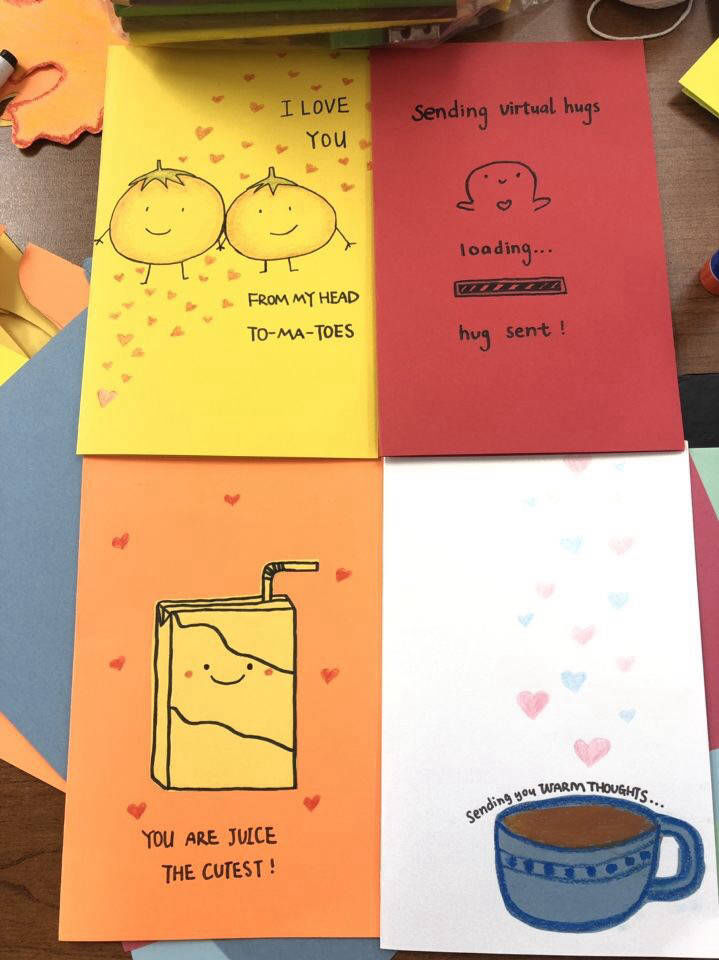 I LOVE
YOU
FROM MY HEAD
TO-MA-TOES
Sending virtual hugs
loading...
hug sent!
YOU ARE JUICE
THE CUTEST!
Sending you WARM THOUGHTS...